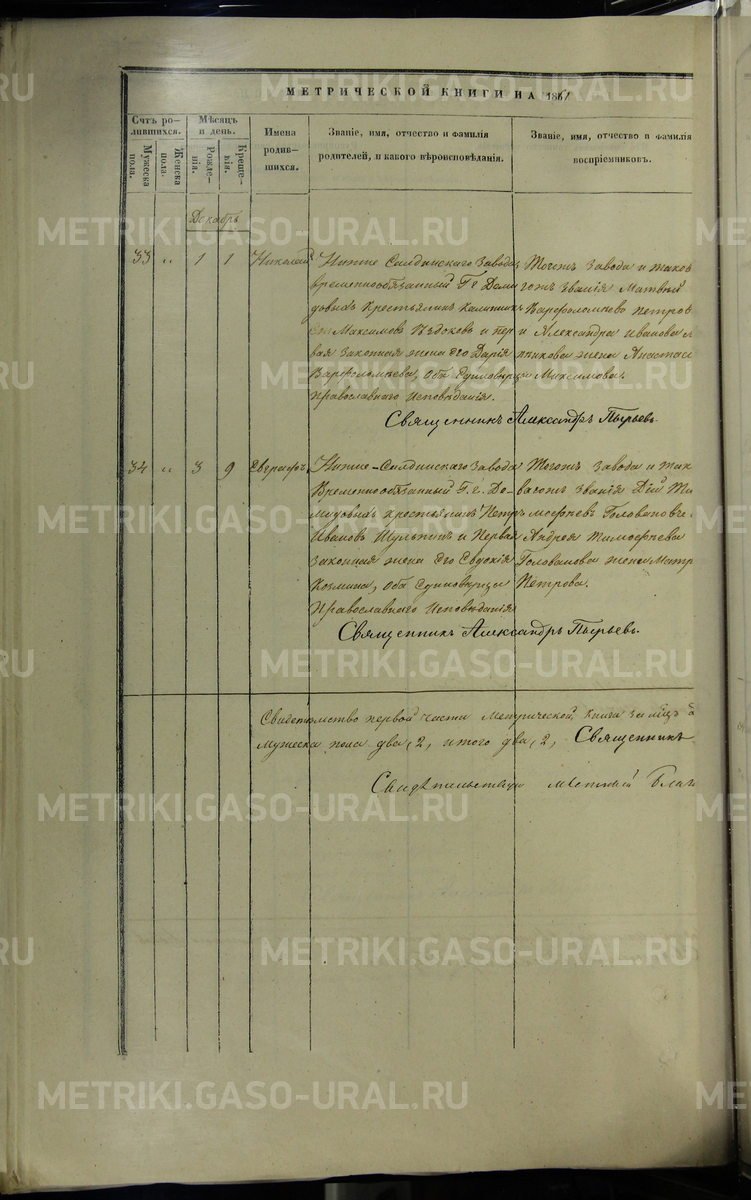 МЕТРИЧЕСКОЙ КНИГИ НА 1861
Счтъ ро-
дившихся.
Мужеска
пола.
Женска
пола.
Мѣсяцъ
и день.
Рожде-
нія.
Креще-
нія.
Имена
родив-
шихся.
Званіе, имя, отчество и фамилія
родителей, и какого вѣроисповѣданія.
Званіе, имя, отчество и фамилія
воспріемниковъ.
Декабрь
33 " 1 1 Николай
Нижне Салдинскаго завода
временнообязанный Г.г. Деми
довыхъ крестьянинъ
Максимовъ Ѣздоковъ и пер
вая законная жена его Дарія
Варфоломѣева, оба Единовѣрцы
православнаго исповѣданія.
Тогожъ завода и таков
гожъ званія Матвѣй
Варфоломѣевъ Петров
и Александра Иванова
жена Анастасі
Максимова.
Священникъ Александръ Пырьевъ.
34 " 3 9 Евграфъ
Нижне-Салдинскаго завода
Временнообязанный Г.г. Де-
мидовыхъ крестьянинъ Петръ
Ивановъ Шульпинъ и Первая
законная жена его Евдокія
Козмина, оба Единовѣрцы
Православнаго Исповѣданія
Тогожъ завода и так
вагожъ званія Дій Ти
мофѣевъ Головановъ
Андрея Тимофѣева
Голованова жена
Петрова.
Священникъ Александръ Пырьевъ.
Свидѣтельство первой части Метрической книги
мужеска пола два, 2, итого два, 2, Священникъ
Свидѣтельствую мѣстный Благ
METRIKI.GASO-URAL.RU